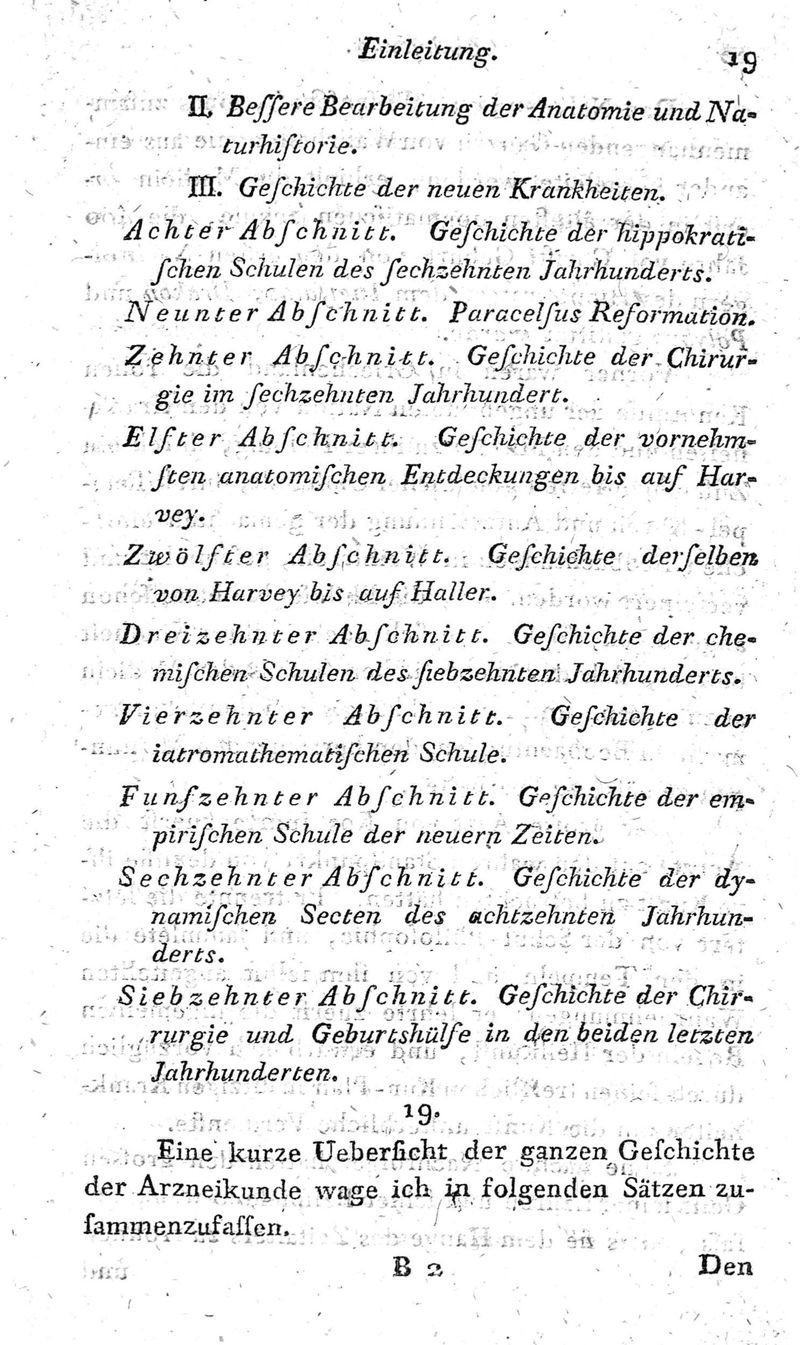 Einleitung. 19
II. Beſſere Bearbeitung der Anatomie und Na-
turhiſtorie.
III. Geſchichte der neuen Krankheiten.
Achter Abſchnitt. Geſchichte der hippokrati-
ſchen Schulen des ſechzehnten Jahrhunderts.
Neunter Abſchnitt. Paracelſus Reformation.
Zehnter Abſchnitt. Geſchichte der Chirur-
gie im ſechzehnten Jahrhundert.
Elfter Abſchnitt. Geſchichte der vornehm-
ſten anatomiſchen Entdeckungen bis auf Har-
vey.
Zwölfter Abſchnitt. Geſchichte derſelben
von Harvey bis auf Haller.
Dreizehnter Abſchnitt. Geſchichte der che-
miſchen Schulen des ſiebzehnten Jahrhunderts.
Vierzehnter Abſchnitt. Geſchichte der
iatromathematiſchen Schule.
Funfzehnter Abſchnitt. Geſchichte der em-
piriſchen Schule der neuern Zeiten.
Sechzehnter Abſchnitt. Geſchichte der dy-
namiſchen Secten des achtzehnten Jahrhun-
derts.
Siebzehnter Abſchnitt. Geſchichte der Chir-
rurgie und Geburtshülfe in den beiden letzten
Jahrhunderten.
19.
Eine kurze Ueberſicht der ganzen Geſchichte
der Arzneikunde wage ich in folgenden Sätzen zu-
ſammenzufaſſen.
B 2 Den